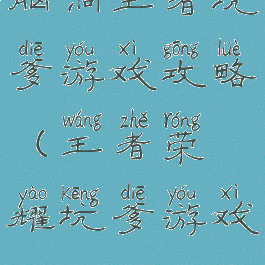 脑洞王者坑
diē yóu xì gōng luè
爹游戏攻略
wáng zhě róng
（王者荣
yào kēng diē yóu xì
耀坑爹游戏